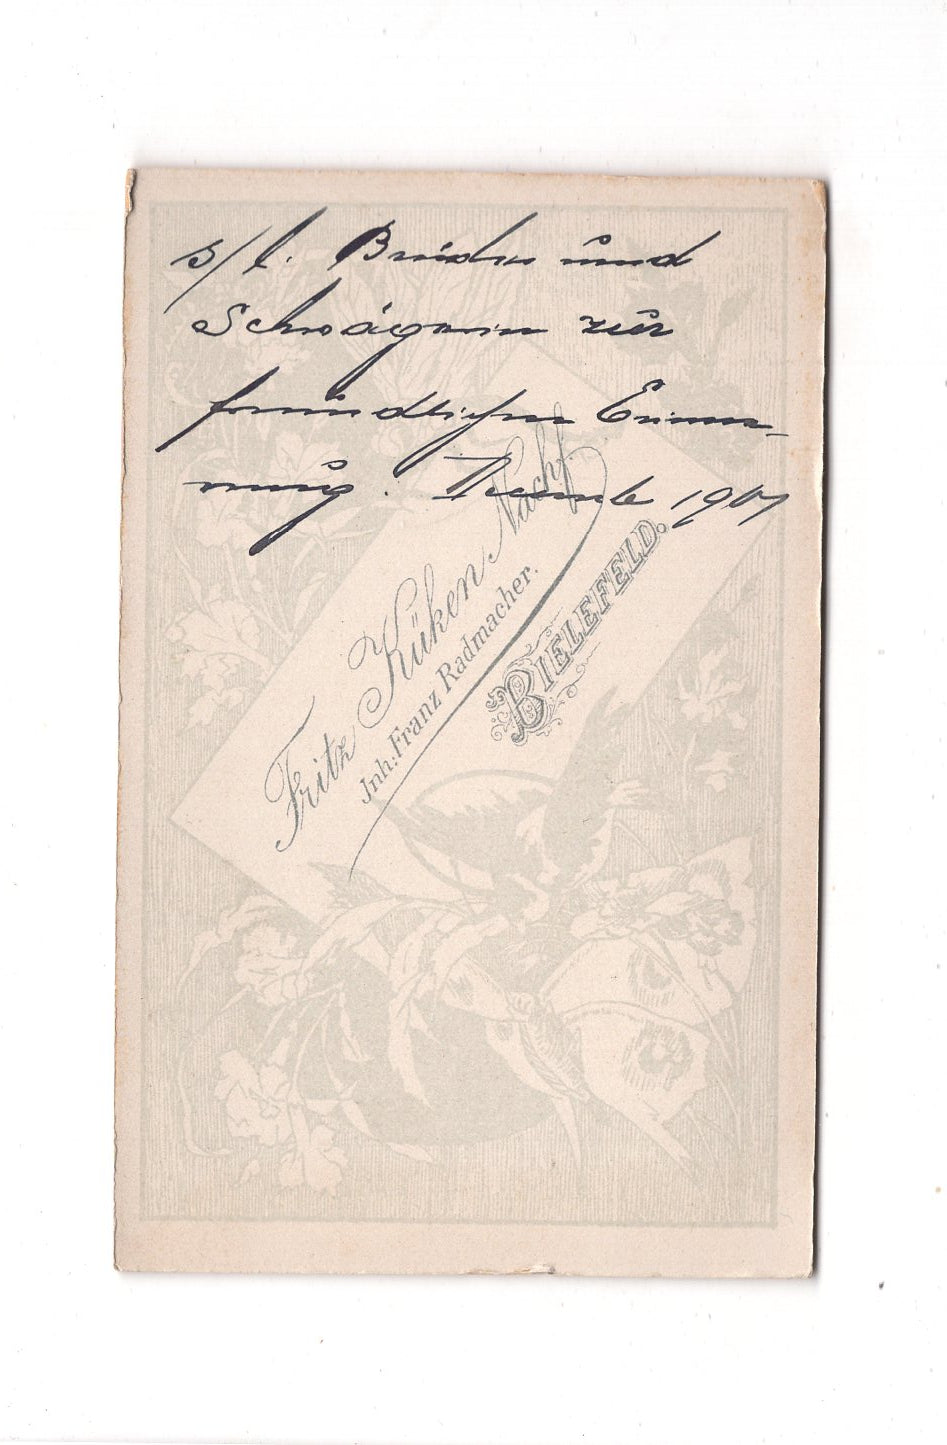 s/l. Bruder und
Schwägerin zur
freundlichen Erinne-
rung. Dezember 1901
Fritz Küken Nachf.
Jnh: Franz Radmacher.
BIELEFELD.